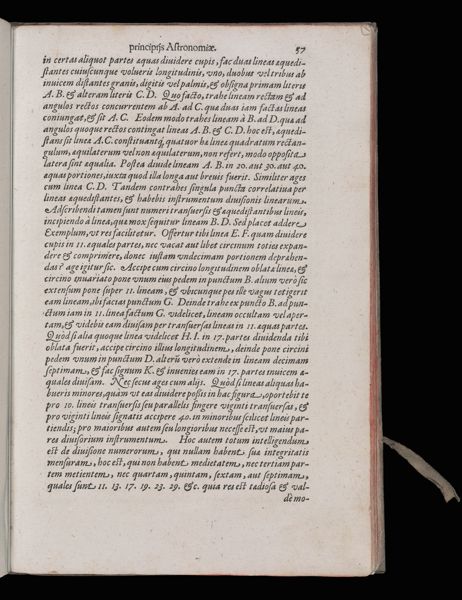 principijs Astronomiæ. 57
in certas aliquot partes æquas diuidere cupis, fac duas lineas æquedi-
stantes cuiuscunque volueris longitudinis, vno, duobus vel tribus ab
inuicem distantes granis, digitis vel palmis, & obsigna primam literis
A. B. & alteram literis C. D. Quo facto, trahe lineam rectam & ad
angulos rectos concurrentem ab A. ad C. quæ duas iam factas lineas
coniungat, & sit A. C. Eodem modo trahes lineam à B. ad D. quæ ad
angulos quoque rectos contingat lineas A. B. & C. D. hoc est, æquedi-
stans sit lineæ A. C. constituantq́; quatuor hæ lineæ quadratum rectan-
gulum, æquilaterum vel non æquilaterum, non refert, modo opposita
latera sint æqualia. Postea diuide lineam A. B. in 20. aut 30. aut 40.
æquas portiones, iuxta quod illa longa aut breuis fuerit. Similiter ages
cum linea C. D. Tandem contrahes singula puncta correlatiua per
lineas æquedistantes, & habebis instrumentum diuisionis linearum.
Adscribendi tamen sunt numeri transuersis & æquedistantibus lineis,
incipiendo à linea, quæ mox sequitur lineam B. D. Sed placet addere
Exemplum, vt res facilitetur. Offertur tibi linea E. F. quam diuidere
cupis in 11. æquales partes, nec vacat aut libet circinum toties expan-
dere & comprimere, donec iustam vndecimam portionem deprehen-
das? age igitur sic. Accipe cum circino longitudinem oblatæ lineæ, &
circino inuariato pone vnum eius pedem in punctum B. alium verò sic
extensum pone super 11. lineam, & vbicunque pes ille vagus tetigerit
eam lineam, ibi facias punctum G. Deinde trahe ex puncto B. ad pun-
ctum iam in 11. linea factum G. videlicet, lineam occultam vel aper-
tam, & videbis eam diuisam per transuersas lineas in 11. æquas partes.
Quòd si alia quoque linea videlicet H. I. in 17. partes diuidenda tibi
oblata fuerit, accipe circino illius longitudinem, deinde pone circini
pedem vnum in punctum D. alterū verò extende in lineam decimam
septimam, & fac signum K. & inuenies eam in 17. partes inuicem æ-
quales diuisam. Nec secus ages cum alijs. Quòd si lineas aliquas ha-
bueris minores, quàm vt eas diuidere possis in hac figura, oportebit te
pro 10. lineis transuersis seu parallelis fingere viginti transuersas, &
pro viginti lineis signatis accipere 40. in minoribus scilicet lineis par-
tiendis; pro maioribus autem seu longioribus necesse est, vt maius pa-
res diuisorium instrumentum. Hoc autem totum intelligendum
est de diuisione numerorum, qui nullam habent suæ integritatis
mensuram, hoc est, qui non habent medietatem, nec tertiam par-
tem metientem, nec quartam, quintam, sextam, aut septimam,
quales sunt 11. 13. 17. 19. 23. 29. &c. quia res est tædiosa & val-
de mo-